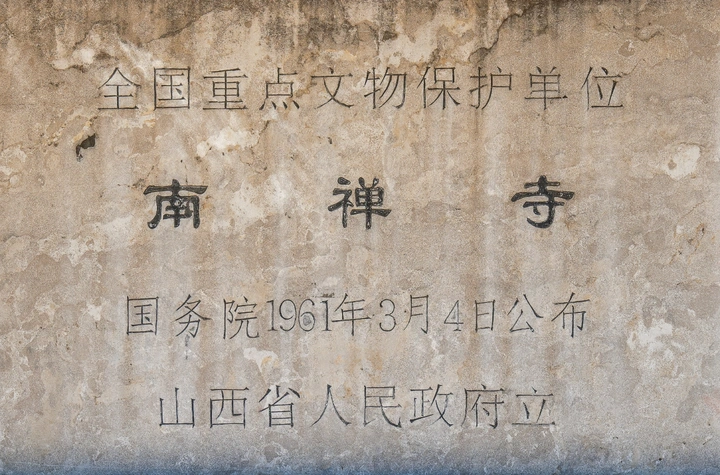 全国重点文物保护单位
南禅寺
国务院1961年3月4日公布
山西省人民政府立